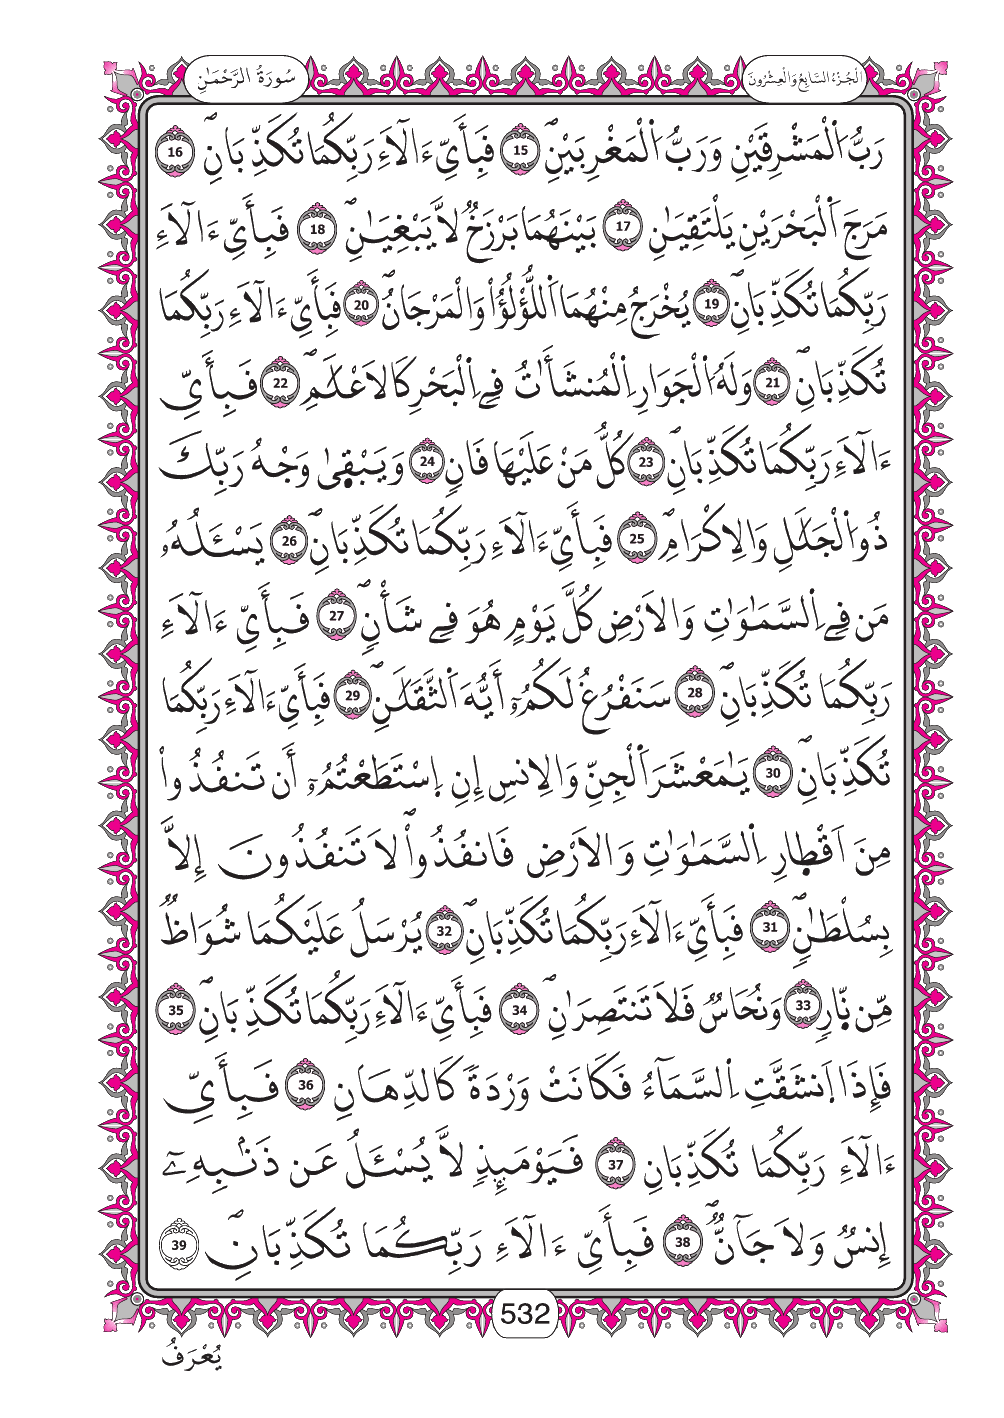 سُورَةُ الرَّحْمَٰنِ
اَلْجُزْءُ السَّابِعُ وَالْعِشْرُونَ
رَبُّ اُ۬لْمَشْرِقَيْنِ وَرَبُّ اُ۬لْمَغْرِبَيْنِۖ 15 فَبِأَيِّ ءَالَآءِ رَبِّكُمَا تُكَذِّبَانِۖ 16
مَرَجَ اَ۬لْبَحْرَيْنِ يَلْتَقِيَٰنِ 17 بَيْنَهُمَا بَرْزَخٌ لَّا يَبْغِيَٰنِۖ 18 فَبِأَيِّ ءَالَآءِ
رَبِّكُمَا تُكَذِّبَانِۖ 19 يُخْرَجُ مِنْهُمَا اَ۬للُّؤْلُؤُاْ وَالْمَرْجَانُۖ 20 فَبِأَيِّ ءَالَآءِ رَبِّكُمَا
تُكَذِّبَانِۖ 21 وَلَهُ اُ۬لْجَوَارِ اِ۬لْمُنشَأَٰتُ فِے اِ۬لْبَحْرِ كَالَاعْلَٰمِۖ 22 فَبِأَيِّ
ءَالَآءِ رَبِّكُمَا تُكَذِّبَانِۖ 23 كُلُّ مَنْ عَلَيْهَا فَانٖ 24 وَيَبْق۪يٰ وَجْهُ رَبِّكَ
ذُو اُ۬لْجَلَٰلِ وَالِاكْرَامِۖ 25 فَبِأَيِّ ءَالَآءِ رَبِّكُمَا تُكَذِّبَانِۖ 26 يَسْـَٔلُهُۥ
مَن فِے اِ۬لسَّمَٰوَٰتِ وَالَارْضِ كُلَّ يَوْمٍ هُوَ فِے شَأْنٖۖ 27 فَبِأَيِّ ءَالَآءِ
رَبِّكُمَا تُكَذِّبَانِۖ 28 سَنَفْرُغُ لَكُمُۥٓ أَيُّهَ اَ۬لثَّقَلَٰنِۖ 29 فَبِأَيِّ ءَالَآءِ رَبِّكُمَا
تُكَذِّبَانِۖ 30 يَٰمَعْشَرَ اَ۬لْجِنِّ وَالِانسِ إِنِ اِ۪سْتَطَعْتُمُۥٓ أَن تَنفُذُواْ
مِنَ اَقْط۪ارِ اِ۬لسَّمَٰوَٰتِ وَالَارْضِ فَانفُذُواْۖ لَا تَنفُذُونَ إِلَّا
بِسُلْطَٰنٖۖ 31 فَبِأَيِّ ءَالَآءِ رَبِّكُمَا تُكَذِّبَانِۖ 32 يُرْسَلُ عَلَيْكُمَا شُوَاظٞ
مِّن نّ۪ارٖ 33 وَنُحَاسٞ فَلَا تَنتَصِرَٰنِۖ 34 فَبِأَيِّ ءَالَآءِ رَبِّكُمَا تُكَذِّبَانِۖ 35
فَإِذَا اَ۪نشَقَّتِ اِ۬لسَّمَآءُ فَكَانَتْ وَرْدَةٗ كَالدِّهَانِ 36 فَبِأَيِّ
ءَالَآءِ رَبِّكُمَا تُكَذِّبَانِ 37 فَيَوْمَئِذٖ لَّا يُسْـَٔلُ عَن ذَنۢبِهِۦٓ
إِنسٞ وَلَا جَآنّٞۖ 38 فَبِأَيِّ ءَالَآءِ رَبِّكُمَا تُكَذِّبَانِۖ 39
532
يُعْرَفُ